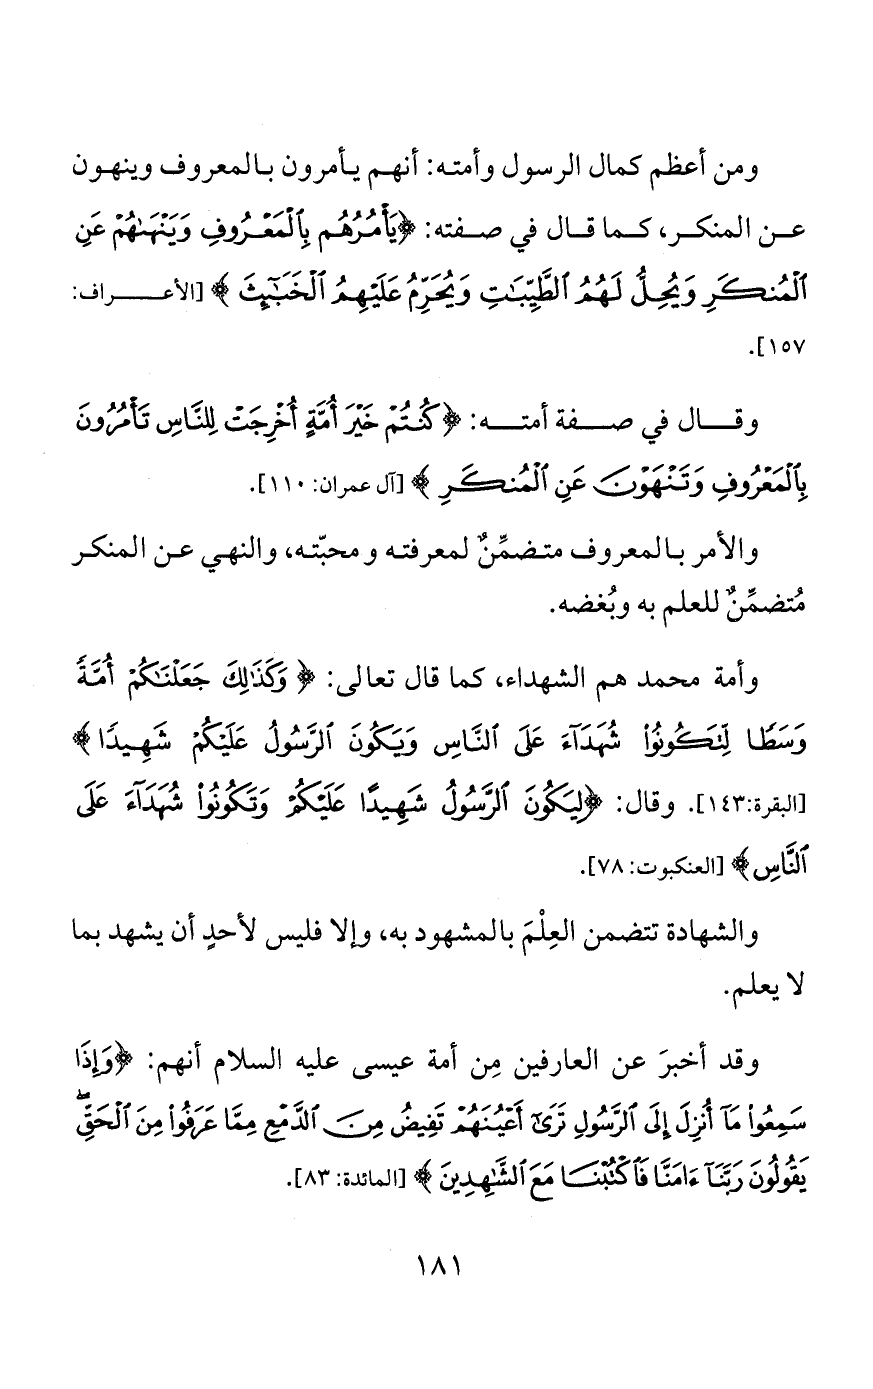 ومن أعظم كمال الرسول وأمته: أنهم يأمرون بالمعروف وينهون
عن المنكر، كما قال في صفته: ﴿يَأْمُرُهُم بِٱلْمَعْرُوفِ وَيَنْهَىٰهُمْ عَنِ
ٱلْمُنكَرِ وَيُحِلُّ لَهُمُ ٱلطَّيِّبَٰتِ وَيُحَرِّمُ عَلَيْهِمُ ٱلْخَبَٰٓئِثَ ﴾ [الأعراف:
١٥٧].
وقال في صفة أمته: ﴿كُنتُمْ خَيْرَ أُمَّةٍ أُخْرِجَتْ لِلنَّاسِ تَأْمُرُونَ
بِٱلْمَعْرُوفِ وَتَنْهَوْنَ عَنِ ٱلْمُنكَرِ ﴾ [آل عمران: ١١٠].
والأمر بالمعروف متضمِّنٌ لمعرفته ومحبّته، والنهي عن المنكر
مُتضمِّنٌ للعلم به وبُغضه.
وأمة محمد هم الشهداء، كما قال تعالى: ﴿ وَكَذَٰلِكَ جَعَلْنَٰكُمْ أُمَّةً
وَسَطًا لِّتَكُونُوا۟ شُهَدَآءَ عَلَى ٱلنَّاسِ وَيَكُونَ ٱلرَّسُولُ عَلَيْكُمْ شَهِيدًا ﴾
[البقرة:١٤٣]. وقال: ﴿لِيَكُونَ ٱلرَّسُولُ شَهِيدًا عَلَيْكُمْ وَتَكُونُوا۟ شُهَدَآءَ عَلَى
ٱلنَّاسِ ﴾ [العنكبوت: ٧٨].
والشهادة تتضمن العِلْمَ بالمشهود به، وإلا فليس لأحدٍ أن يشهد بما
لا يعلم.
وقد أخبرَ عن العارفين مِن أمة عيسى عليه السلام أنهم: ﴿وَإِذَا
سَمِعُوا۟ مَآ أُنزِلَ إِلَى ٱلرَّسُولِ تَرَىٰٓ أَعْيُنَهُمْ تَفِيضُ مِنَ ٱلدَّمْعِ مِمَّا عَرَفُوا۟ مِنَ ٱلْحَقِّ ۖ
يَقُولُونَ رَبَّنَآ ءَامَنَّا فَٱكْتُبْنَا مَعَ ٱلشَّٰهِدِينَ ﴾ [المائدة: ٨٣].
١٨١